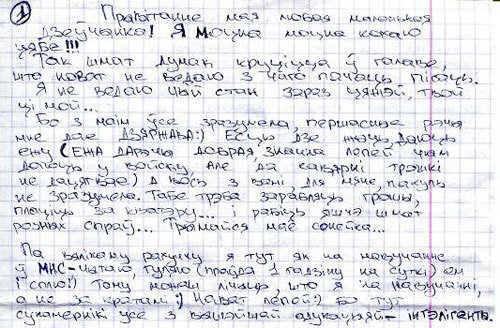 1
Прывітанне мая любая маленькая
дзяўчынка! Я моцна моцна кахаю
цябе!!!
Так шмат думак круціцца ў галаве,
што нават не ведаю з чаго пачаць пісаць.
Я не ведаю чый стан зараз цяжэй, твой
ці мой...
Бо з маім ўсе зразумела, першасныя рэчы
мне дае ДЗЯРЖАВА:) Ёсць дзе жыць, даюць
ежу (ЕЖА дарэчы добрая, значна лепей чым
даюць у войску, але да кавяркі трошкі
не дацягвае) А вось з вамі, для мяне, пакуль
не зразумела. Табе трэба зарабляць грошы,
плаціць за кватэру... і рабіць яшчэ шмат
розных спраў... Трымайся маё сонейка...
Па вялікаму рахунку я тут як на навучанне
ў МНС - чытаю, гуляю (праўда 1 гадзіну на суткі) ем
і сплю:) Таму можаш лічыць, што я на навучанні,
а не за кратамі:) Нават лепей:) Бо тут
сукамернікі усе з вышэйшай адукацыяй - інтэлігенты.